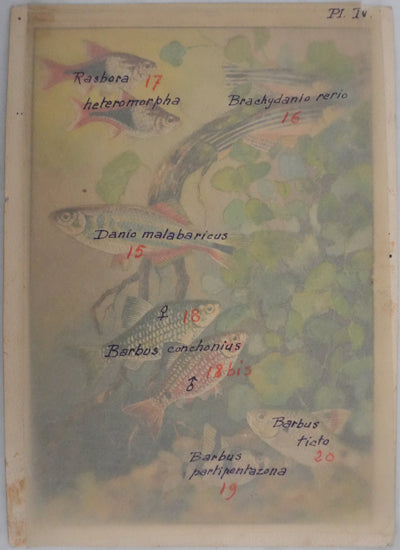 Pl. IV.
Rasbora 17
heteromorpha
Brachydanio rerio
16
Danio malabaricus
15
♀ 18
Barbus conchonius
18 bis
♂
Barbus
ticto
20
Barbus
partipentazona
19